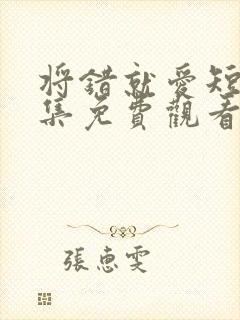 将錯就愛短
集免費觀看
張惠雯